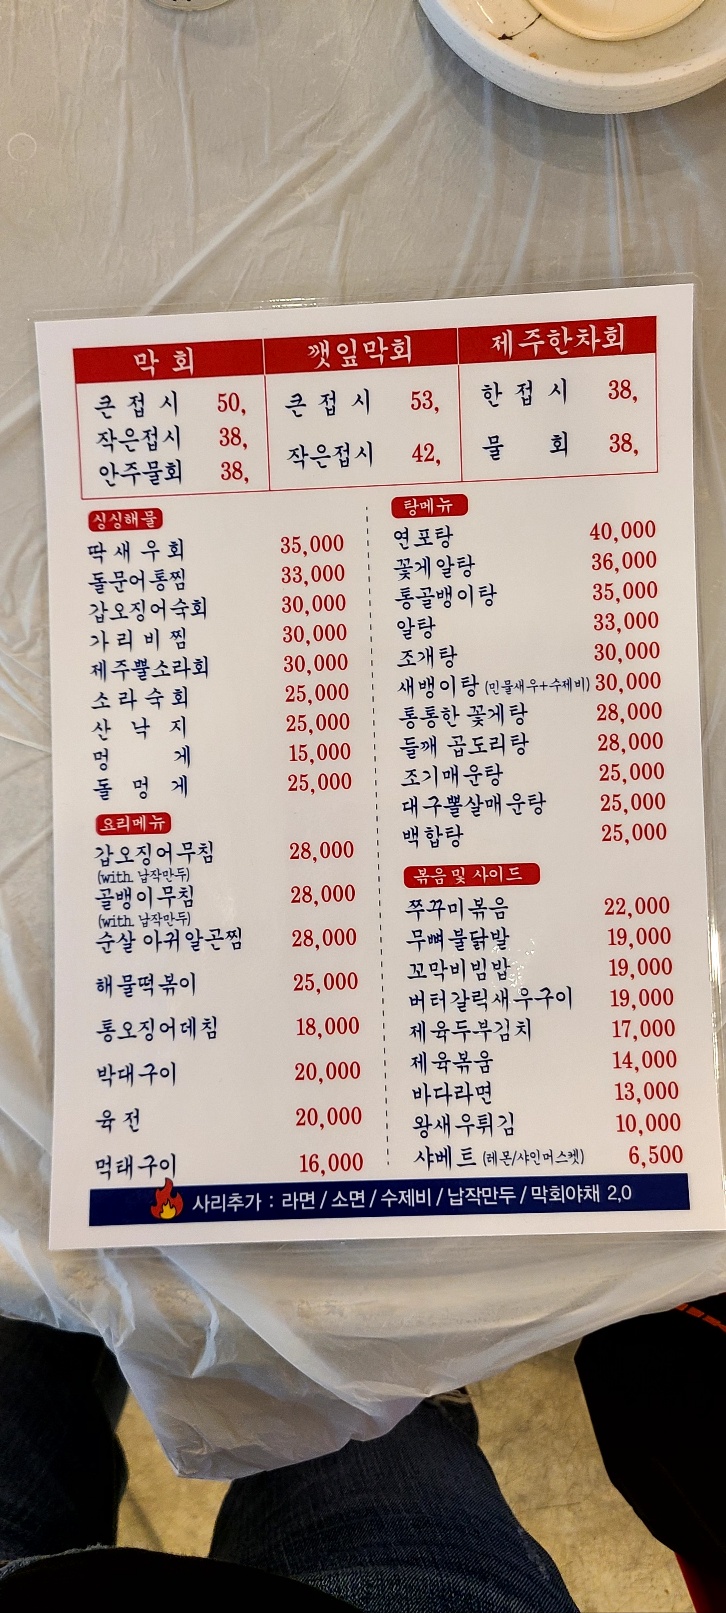 막 회
큰 접 시 50,
작은접시 38,
안주물회 38,
깻잎막회
큰 접 시 53,
작은접시 42,
제주한차회
한 접 시 38,
물 회 38,
싱싱해물
딱 새 우 회 35,000
돌문어통찜 33,000
갑오징어숙회 30,000
가 리 비 찜 30,000
제주뿔소라회 30,000
소 라 숙 회 25,000
산 낙 지 25,000
멍 게 15,000
돌 멍 게 25,000
요리메뉴
갑오징어무침 28,000
(with 납작만두)
골뱅이무침 28,000
(with 납작만두)
순살 아귀알곤찜 28,000
해물떡볶이 25,000
통오징어데침 18,000
박대구이 20,000
육전 20,000
먹태구이 16,000
탕메뉴
연포탕 40,000
꽃게알탕 36,000
통골뱅이탕 35,000
알탕 33,000
조개탕 30,000
새뱅이탕 (민물새우+수제비) 30,000
통통한 꽃게탕 28,000
들깨 곰도리탕 28,000
조기매운탕 25,000
대구뽈살매운탕 25,000
백합탕 25,000
볶음 및 사이드
쭈꾸미볶음 22,000
무뼈불닭발 19,000
꼬막비빔밥 19,000
버터갈릭새우구이 19,000
제육두부김치 17,000
제육볶음 14,000
바다라면 13,000
왕새우튀김 10,000
샤베트 (레몬/샤인머스켓) 6,500
사리추가 : 라면 / 소면 / 수제비 / 납작만두 / 막회야채 2,0